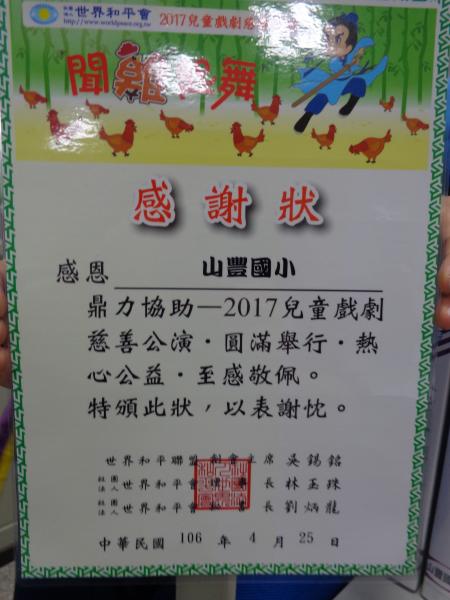 社團法人 世界和平會
http://www.worldpeace.org.tw
2017兒童戲劇慈
聞雞起舞
感謝狀
感恩 山豐國小
鼎力協助—2017兒童戲劇
慈善公演‧圓滿舉行‧熱
心公益‧至感敬佩。
特頒此狀，以表謝忱。
世界和平聯盟 副會主席 吳錫銘
社團法人 世界和平會 理事長 林玉珠
社團法人 世界和平會 長 劉炳龍
中華民國 106 年 4 月 25 日
山豐國